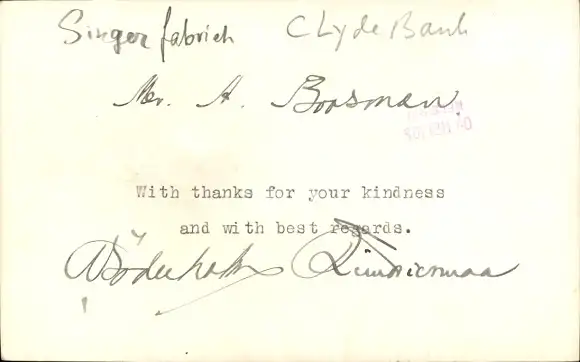 Singer fabrick Clyde Bank
Mr. A. Boosman.
With thanks for your kindness
and with best regards.